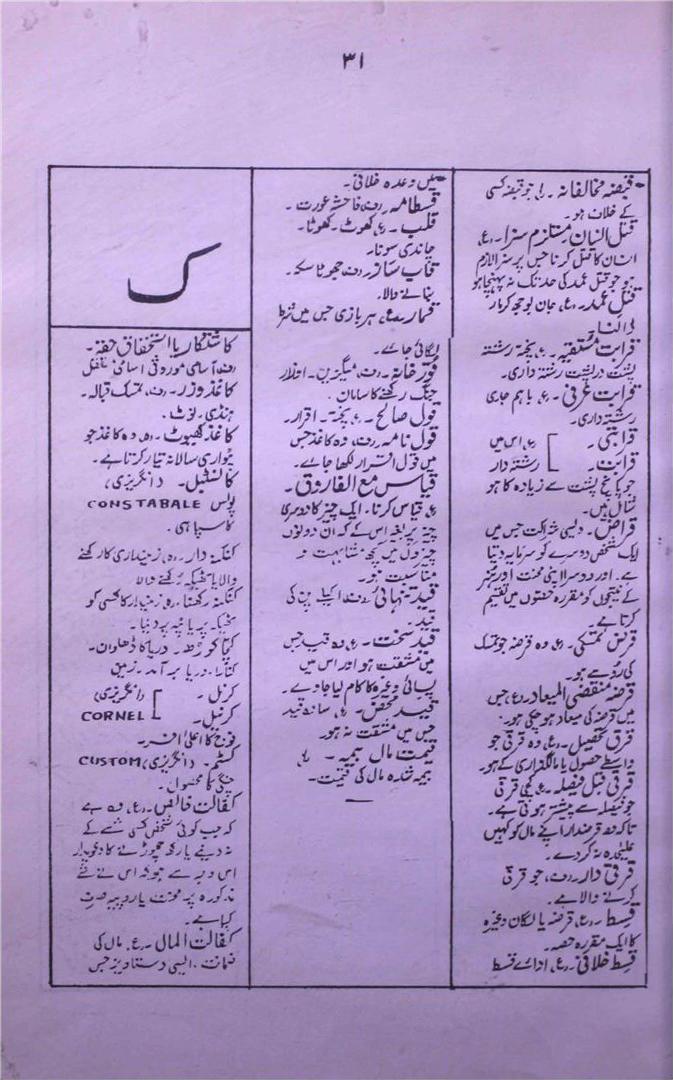 ۳۱
قبضہ مخالفانہ ۔ (ع) جو قبضہ کسی
کے خلاف ہو۔
قتل انسان مستلزم سزا۔ (ع)
انسان کا قتل کرنا جس پر سزا لازم
ہو جو قتل عمد کی حد تک نہ پہنچا ہو
قتل عمد۔ (ع) جان بوجھ کر مار
ڈالنا۔
قرابت مستقیمہ۔ (ع) پختہ رشتہ
پشت در پشت رشتہ داری۔
قرابت عرفی۔ (ع) باہم جاری
رشتہ داری۔
قرابتی۔ (ع) اس میں
قرابت۔ رشتہ دار
جو پانچ پشت سے زیادہ کا ہو
شامل ہیں۔
قراض۔ ایسی شراکت جس میں
ایک شخص دوسرے کو سرمایہ دیتا
ہے۔ اور دوسرا اپنی محنت اور ہنر
کے نتیجوں کو مقررہ حصوں میں تقسیم
کرتا ہے۔
قرض تمسکی۔ (ع) وہ قرضہ جو تمسک
کی رو سے ہو۔
قرضہ منقضی المیعاد۔ (ع) جس
میں قرضہ کی میعاد ہو چکی ہو۔
قرق تحصیل۔ (ع) وہ قرقی جو
واسطے حصول یا مالگذاری کے ہو۔
قرقی قبل فیصلہ۔ (ع) کچی قرقی
جو فیصلہ سے پیشتر ہوتی ہے۔
تاکہ قرضدار اپنے مال کو کہیں
علیحدہ نہ کر دے۔
قرقی دار۔ (ف) جو قرقی
کرنے والا ہے۔
قسط۔ (ع) قرضہ یا لگان وغیرہ
کا ایک مقررہ حصہ۔
قسط خلافی۔ (ع) ادائے قسط
میں وعدہ خلافی۔
قسطامہ۔ (ف) فاحشہ عورت۔
قلب۔ (ع) کھوٹ۔ کھوٹا۔
چاندی سونا۔
قلب ساز۔ (ف) جھوٹا سکہ۔
بنانے والا۔
قمار۔ (ع) ہر بازی جس میں شرط
لگائی جائے۔
قور خانہ۔ (ف) میگزین۔ اوزار
جنگ رکھنے کا سامان۔
قول صالح۔ (ع) پختہ۔ اقرار۔
قول نامہ۔ (ف) وہ کاغذ جس
میں قول اقرار لکھا جائے۔
قیاس مع الفاروق۔
(ع) قیاس کرنا۔ ایک چیز کا دوسری
چیز پر بغیر اس کے کہ ان دونوں
چیزوں میں کچھ مشابہت و
مناسبت ہو۔
قید تنہائی۔ (ف) اکیلے پن کی
قید۔
قید سخت۔ (ع) وہ قید جس
میں مشقت ہو اور اس میں
پسائی وغیرہ کا کام لیا جاوے۔
قید محض۔ (ع) سادہ قید
جس میں مشقت نہ ہو۔
قیمت مال بیمہ۔ (ع)
بیمہ شدہ مال کی قیمت۔
ک
کاشتکار با استحقاق حقہ۔
(ف) آسامی موروثی آسامی
کاغذ وزر۔ (ف) تمسک قبالہ۔
ہنڈی۔ نوٹ۔
کاغذ کھیوٹ۔ (ہ) وہ کاغذ جو
پٹواری سالانہ تیار کرتا ہے۔
کانسٹیبل۔ (انگریزی)
CONSTABALE پولس
کا سپاہی۔
کنکنہ دار۔ (ہ) زمینداری کار کھنے
والا یا ٹھیکہ رکھنے والا
کنکنہ رکھنا۔ (ہ) زمیندار کا کسی کو
ٹھیکہ پر یا پٹہ پر دینا۔
دریا کا ڈھاوان۔
دریا برآمد۔ زمین
کرنل۔ (انگریزی)
کرنیل۔ CORNEL
فوج کا اعلیٰ افسر۔
کسٹم۔ (انگریزی) CUSTOM
چنگی کا محصول۔
کفالت خالص۔ (ع) وہ ہے
کہ جب کوئی شخص کسی شے کے
نہ دینے یا رکھ چھوڑنے کا دعویدار
اس وجہ سے ہو کہ اس نے شے
مذکورہ پر محنت یا روپیہ صرف
کیا ہے۔
کفالت المال۔ (ع) مال کی
ضمانت۔ ایسی دستاویز جس